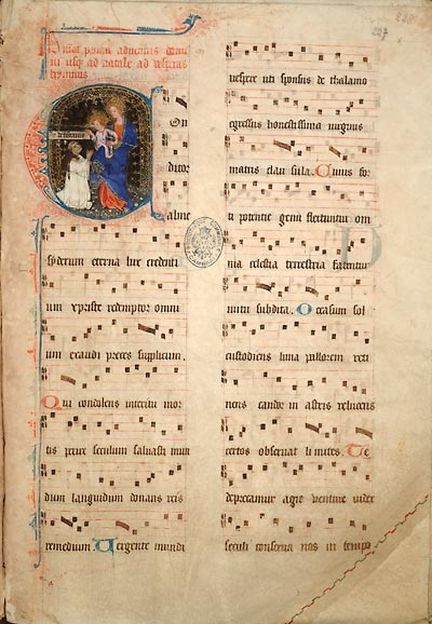 adventus domi
ni usq ad natale ad vesperas
hymnus
On
ditor
alme
syderum eterna lux credenti
um xpriste redemptor omni
um exaudi preces supplicum.
Qui condolens interitu mor
tis perire seculum salvasti mun
dum languidum donans reis
remedium. Vergente mundi
vespere uti sponsus de thalamo
egressus honestissima virginis
matris clausula. Cuius for
ti potentie genu flectuntur om
nia celestia terrestria fatentur
nutu subdita. Occasum sol
custodiens luna pallorem reti
nens candor in astris relucens
certos observat limites. Te
deprecamur agie venture iudex
seculi conserva nos in tempo